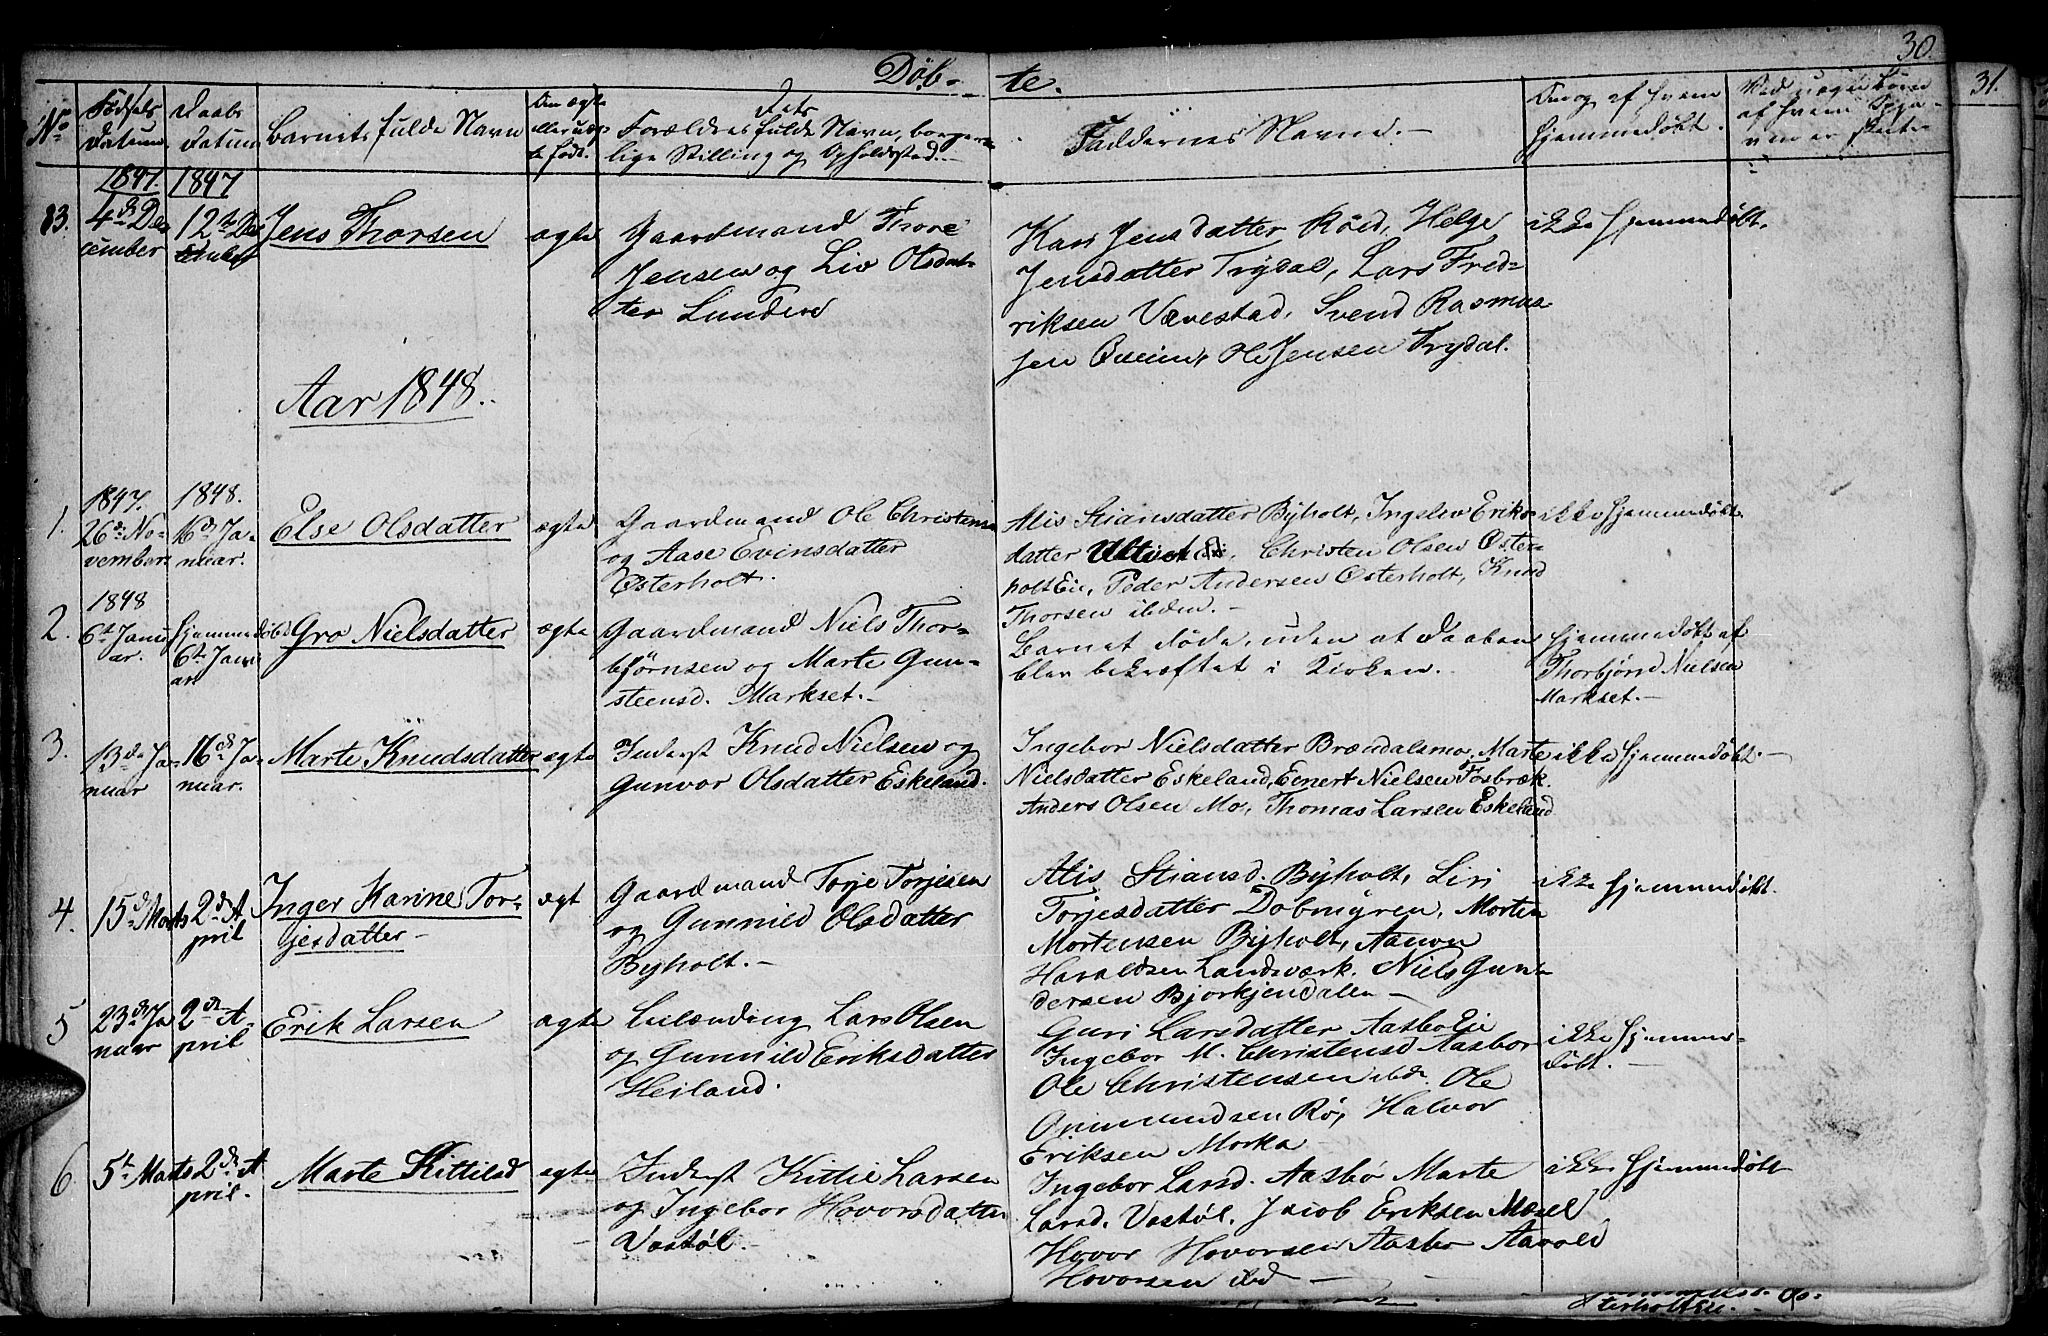 Døb-
te.
30.
31.
No
Fødsels
Datum
Daabs
Datum
Barnets fulde Navn
Om ægte
eller uæg-
te født.
Forældrenes fulde Navn, borger-
lige Stilling og Opholdssted.
Faddernes Navne.
Om og af hvem
hjemmedøbt.
1847.
1847
83.
4de De-
cember
12te De-
cember
Jens Thorsen
ægte
Gaardmand Thore
Jensen og Liv Olsdat-
ter Lunden
Kari Jensdatter Røed, Helge
Jensdatter Trydal, Lars Fred-
riksen Vævestad, Svend Rasmus-
sen Qveim, Ole Jensen Trydal.
ikke hjemmedøbt.
Aar 1848.
1.
1847.
26de No-
vember.
1848.
16de Ja-
nuar.
Else Olsdatter
ægte
Gaardmand Ole Christens.
og Aase Evinsdatter
Østerholt.
Alis Stiansdatter Byholt, Ingelev Eriks-
datter, Christen Olsen Øster-
holt Eie, Peder Andersen Østerholt, Knud
Thorsen ibdm.
ikke hjemmedøbt
2.
1848
6te Janu-
ar.
Hjemmedøbt
6te Janu-
ar
Gro Nielsdatter
ægte
Gaardmand Niels Thor-
bjørnsen og Marte Gun-
steensd. Markset.
Barnet døde, uden at Daaben
blev bekræftet i Kirken.
Hjemmedøbt af
Thorbjørn Nielsen
Markset.
3.
13de Ja-
nuar
16de Ja-
nuar.
Marte Knudsdatter
ægte
Inderst Knud Nielsen og
Gunvor Olsdatter Eskeland.
Ingebor Nielsdatter Brændalsmo, Marte
Nielsdatter Eskeland, Eenert Nielsen Fosbræk.
Anders Olsen Mo, Thomas Larsen Eskeland
ikke hjemmedøbt.
4.
15de Marts
2den A-
pril
Inger Karine Tor-
jesdatter
ægt
Gaardmand Torje Torjesen
og Gunnild Olsdatter
Byholt.
Alis Stiansd. Byholt, Siri
Torjesdatter Dobmyren, Morten
Mortensen Byholt, Aanon
Haraldsen Landsværk. Niels Gun-
dersen Bjorkjendalen
ikke hjemmedøbt.
5
23de Ja-
nuar
2den A-
pril
Erik Larsen
ægte
Leilænding Lars Olsen
og Gunnild Eriksdatter
Heiland.
Guri Larsdatter Aasbo Eie
Ingebor M. Christensd Aasbor
Ole Christensen ibd. Ole
Omundsen Rø, Halvor
Eriksen Morka
ikke hjemme-
døbt.
6
5te Marts
2den A-
pril.
Marte Kittilsd
ægte
Inderst Kittil Larsen
og Ingebor Hovorsdatter
Vostøl.
Ingebor Larsd. Aasbø Marte
Larsd. Vostøl, Jacob Eriksen Mæsel
Hovor Hovorsen Aasbo Aavold
Hovorsen ibd
ikke hjemmedøbt